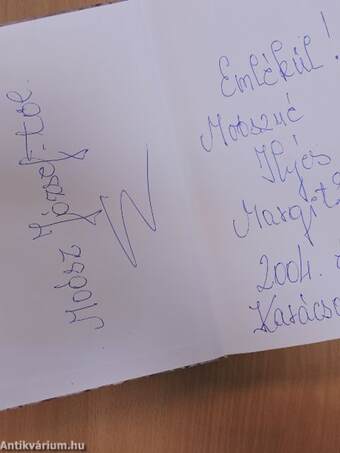 Moósz József-től.
Emlékül!
Moószné
Illyés
Margit
2004.
Karácso
Antikvárium.hu